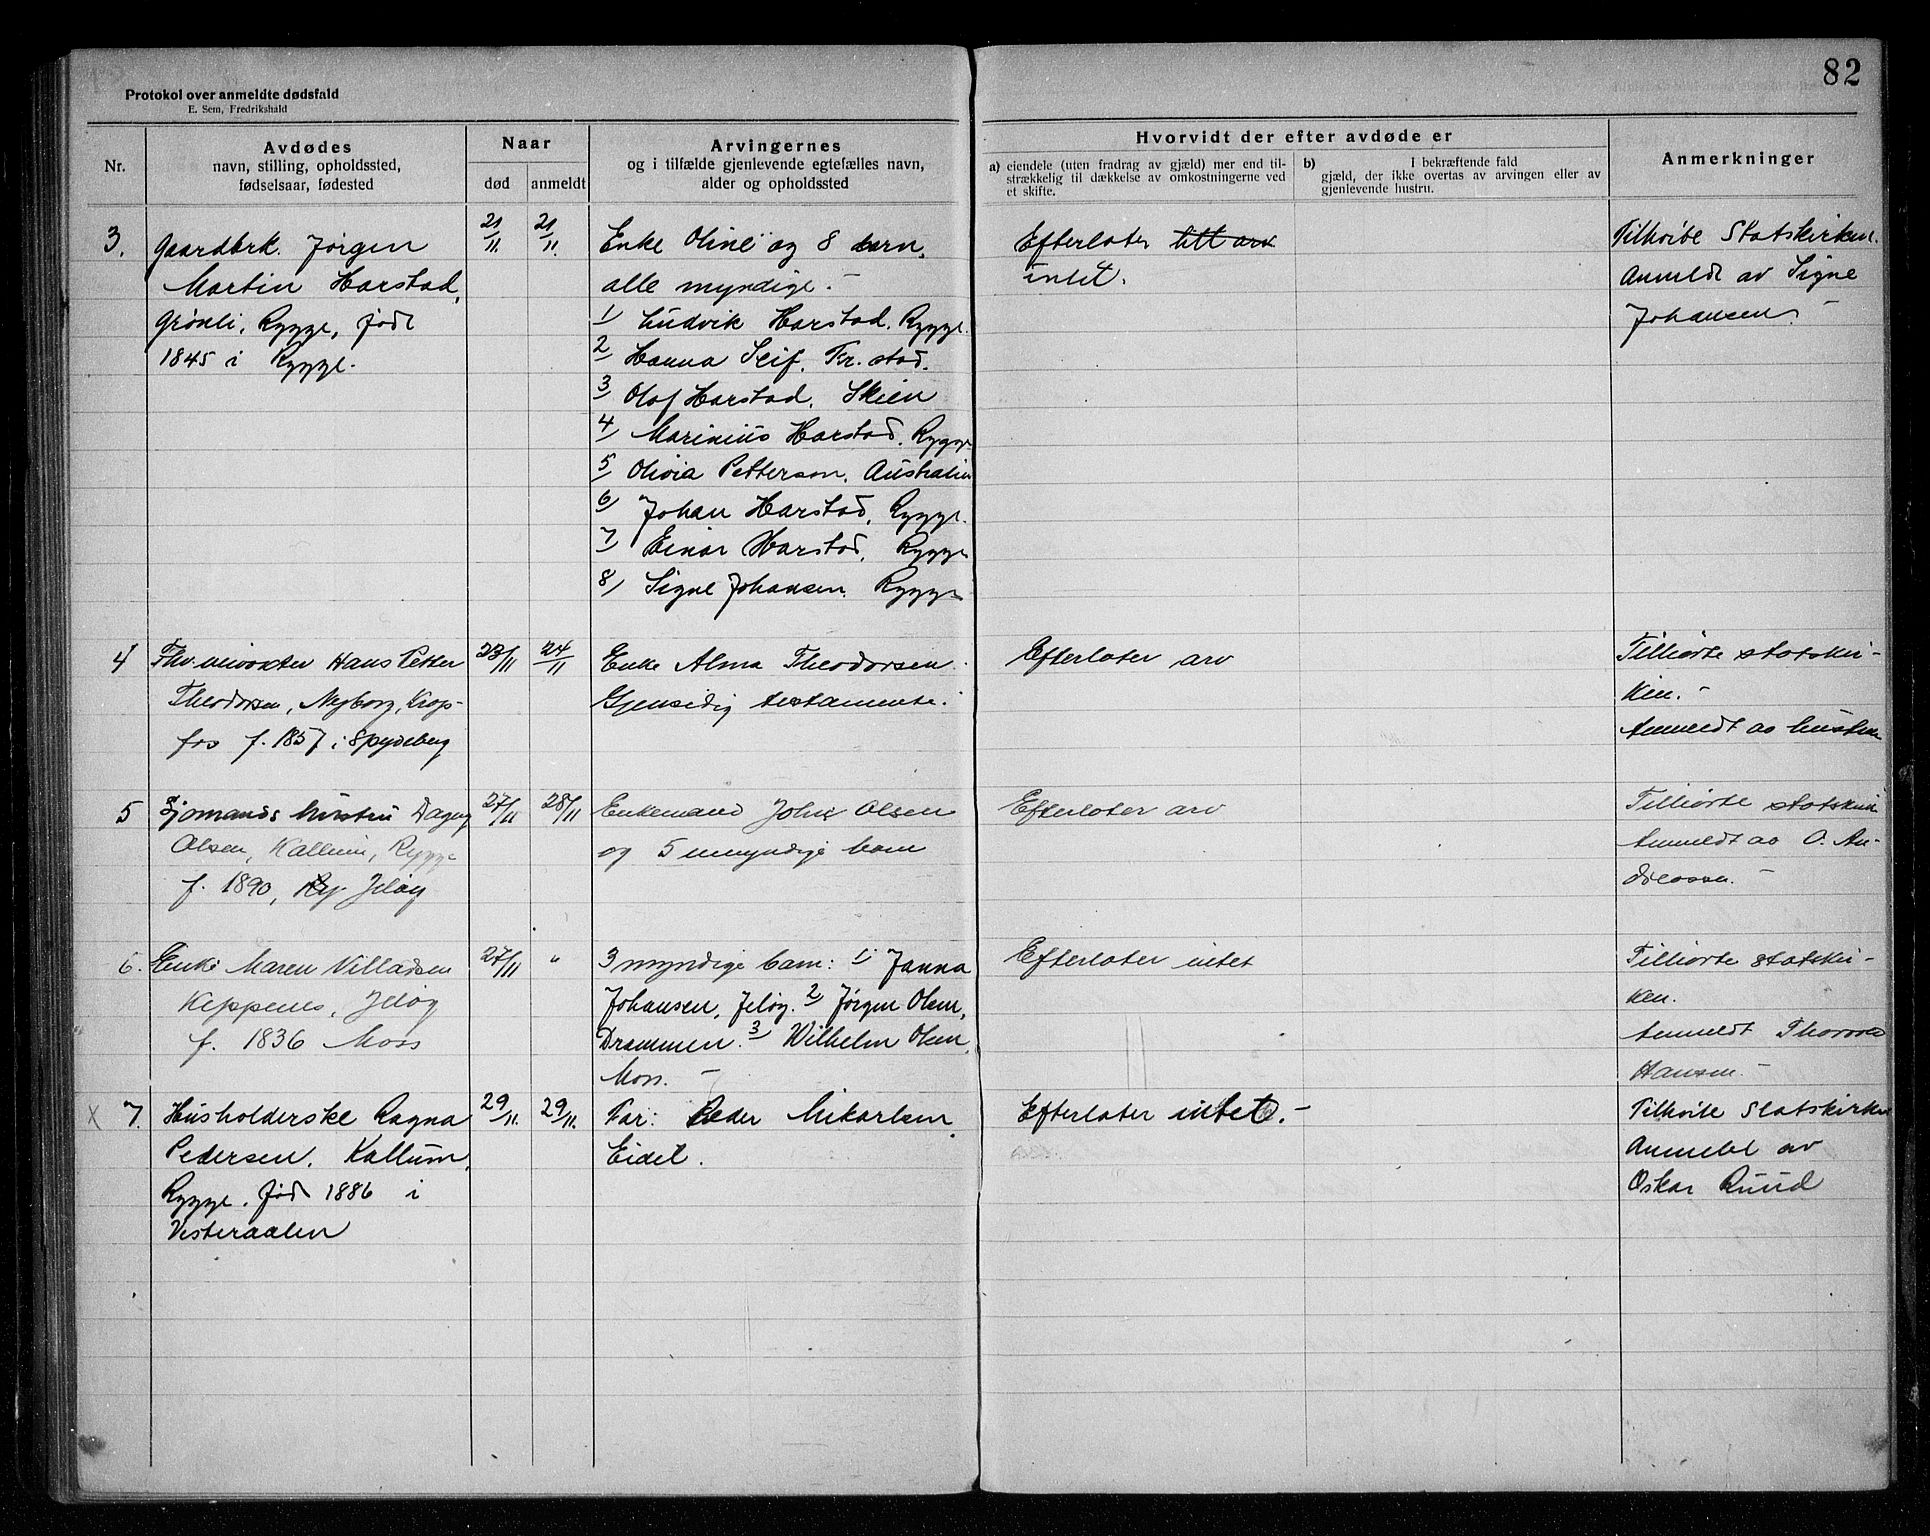 82
Protokol over anmeldte dødsfald
E. Sem, Fredrikshald
Nr.
Avdødes
navn, stilling, opholdssted,
fødselsaar, fødested
Naar
død
anmeldt
Arvingernes
og i tilfælde gjenlevende egtefælles navn,
alder og opholdssted
Hvorvidt der efter avdøde er
a) eiendele (uten fradrag av gjæld) mer end til-
strækkelig til dækkelse av omkostningerne ved
et skifte.
b) I bekræftende fald
gjæld, der ikke overtas av arvingen eller av
gjenlevende hustru.
Anmerkninger
3.
Gaardbrk. Jørgen
Martin Harstad,
Grönli, Rygge, født
1845 i Rygge.
21/11
21/11.
Enke Oline og 8 barn,
alle myndige.-
1/ Ludvik Harstad, Rygge.
2/ Hanna Seif, Fr.stad.
3/ Olaf Harstad, Skien
4/ Marinius Harstad, Rygge
5/ Olivia Petterson, Australien
6/ Johan Harstad, Rygge.
7/ Einar Harstad, Rygge
8/ Signe Johansen, Rygge
Efterlater litt arv
intet.
Tilhörte Statskirken.
Anmeldt av Signe
Johansen.-
4
Hans Petter
Theodorsen, Nyborg, Krop-
fos f. 1857 i Spydeberg
23/11
24/11
Enke Alma Theodorsen.
Gjensidig testamente.
Efterlater arv
Tilhörte statskir-
ken.-
Anmeldt av hustruen
5
Sjømands hustru Dagny
Olsen, Kallum, Rygge
f. 1890, Ry. Jeløy
27/11
28/11
Enkemand John Olsen
og 5 umyndige barn
Efterlater arv
Tilhörte statskirk
Anmeldt av O. An-
dreassen.-
6.
Enke Maren Villadsen
Keppenes, Jeløy
f. 1836 Moss
27/11
"
3 myndige barn: 1/ Janna
Johansen, Jeløy. 2/ Jørgen Olsen,
Drammen. 3/ Wilhelm Olsen,
Moss. -
Efterlater intet
Tilhörte statskir-
ken.
Anmeldt Thorvald
Hansen.-
X 7.
Husholderske Ragna
Pedersen, Kallum,
Rygge, født 1886 i
Vesteraalen
29/11.
29/11.
Far: Peder Mikarlsen,
Eidet.
Efterlater intet.-
Tilhörte Statskirken
Anmeldt av
Oskar Ruud